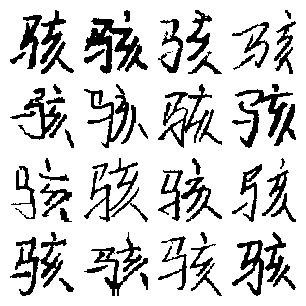 骇骇骇骇
骇骇骇骇
骇骇骇骇
骇骇骇骇